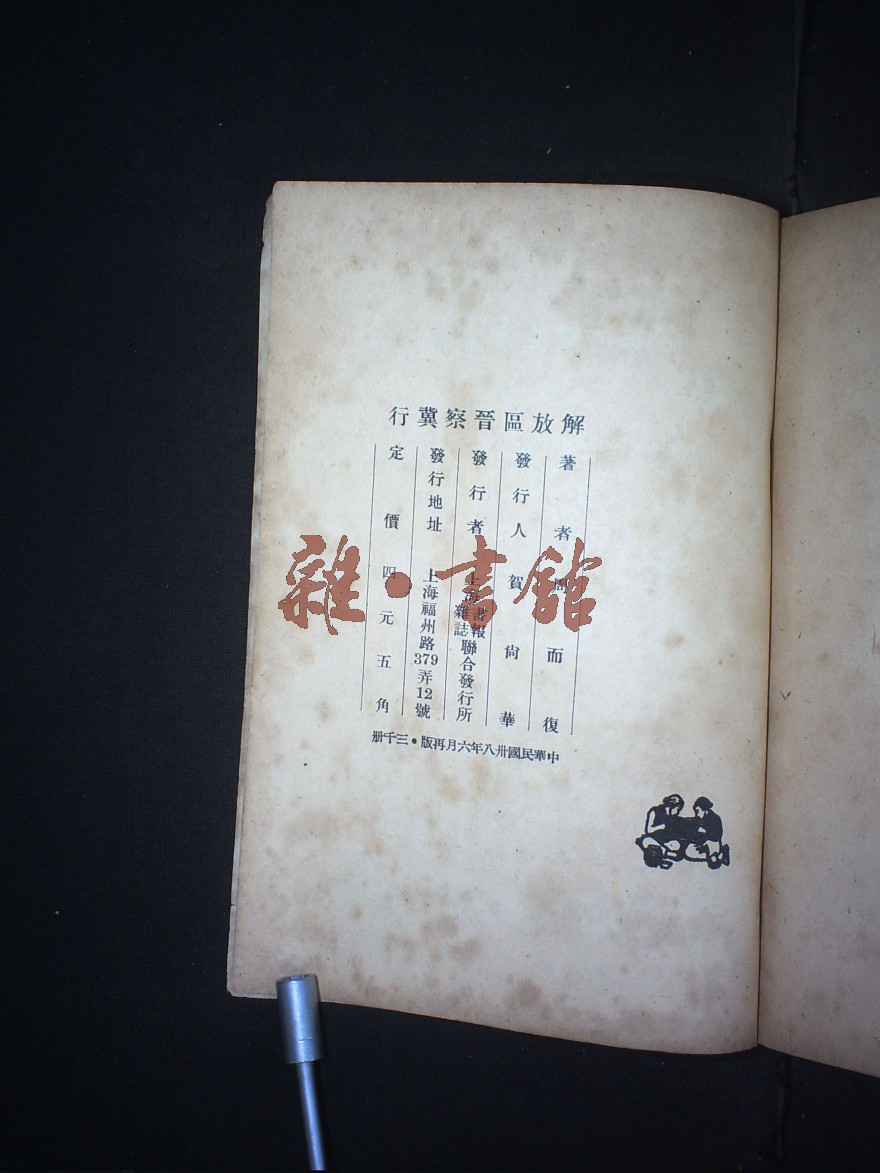 解放區晉察冀行
著者周而復
發行人賀尙華
發行者上海書報雜誌聯合發行所
發行地址上海福州路379弄12號
定價四元五角
中華民國卅八年六月再版·三千册
雜·書館